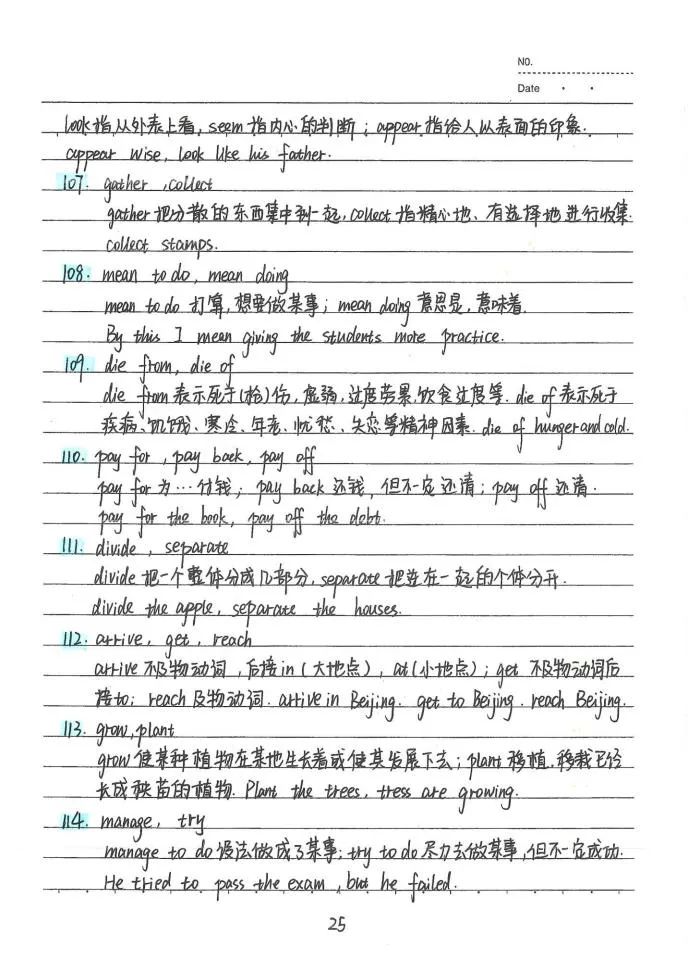 NO.
Date
look指从外表上看，seem指内心的判断；appear指给人以表面的印象.
appear wise, look like his father.
107. gather ,collect
gather把分散的东西集中到一起，collect指精心地、有选择地进行收集.
collect stamps.
108. mean to do, mean doing
mean to do 打算，想要做某事；mean doing 意思是，意味着.
By this I mean giving the students more practice.
109. die from, die of
die from表示死于(枪)伤，虚弱，过度劳累，饮食过度等. die of 表示死于
疾病、饥饿、寒冷、年老、忧愁、失恋等精神因素. die of hunger and cold.
110. pay for , pay back, pay off
pay for为…付钱；pay back还钱，但不一定还清；pay off还清.
pay for the book, pay off the debt.
111. divide , separate
divide把一个整体分成几部分，separate把连在一起的个体分开.
divide the apple, separate the houses.
112. arrive, get, reach
arrive不及物动词，后接in(大地点)，at(小地点)；get 不及物动词后
接to；reach及物动词. arrive in Beijing. get to Beijing. reach Beijing.
113. grow,plant
grow使某种植物在某地生长着或使其发展下去；plant移植.移栽已经
长成秧苗的植物. Plant the trees, tress are growing.
114. manage, try
manage to do设法做成了某事；try to do尽力去做某事，但不一定成功.
He tried to pass the exam, but he failed.
25